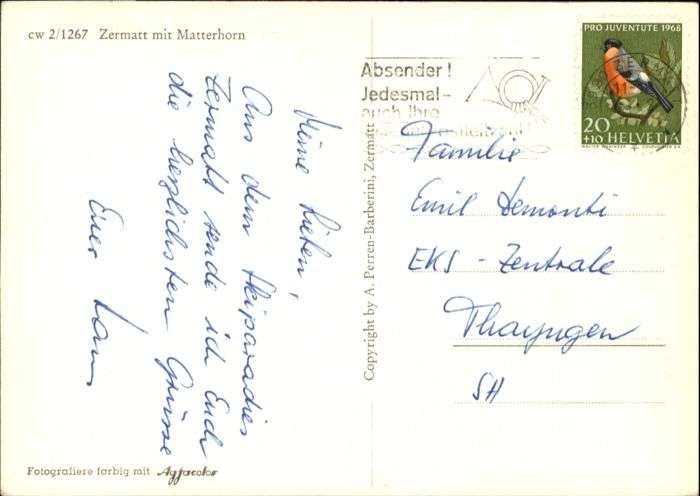 cw 2/1267 Zermatt mit Matterhorn
Meine Lieben,
Aus dem Skiparadies
Zermatt sende ich Euch
die herzlichsten Grüsse
Euer
Fotografiere farbig mit Agfacolor
Copyright by A. Perren-Barberini, Zermatt
Absender!
Jedesmal-
auch Ihre
PRO JUVENTUTE 1968
20
+10 HELVETIA
Familie
Emil Demonti
EKS - Zentrale
Thayngen
SH